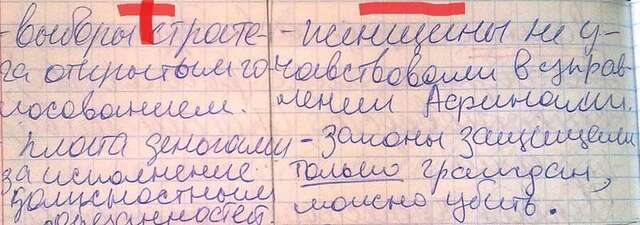 - выборы страте-
га открытым го-
лосованием.
- плата деньгами
за исполнение
должностным
обязанностей.
- женщины не у-
чавствовали в управ-
лении Афинами.
- законы защищали
только граждан,
можно убить.